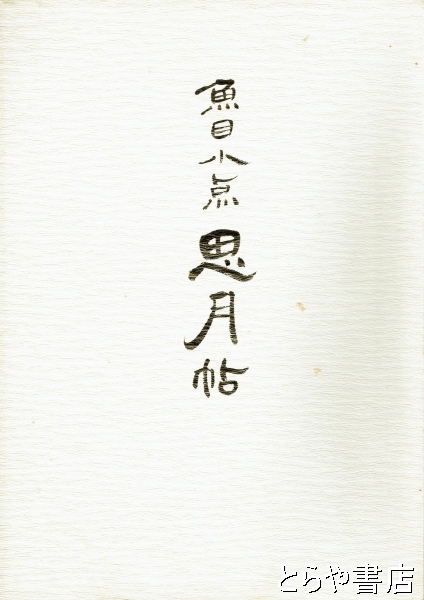 魚目小点
思月帖
とらや書店